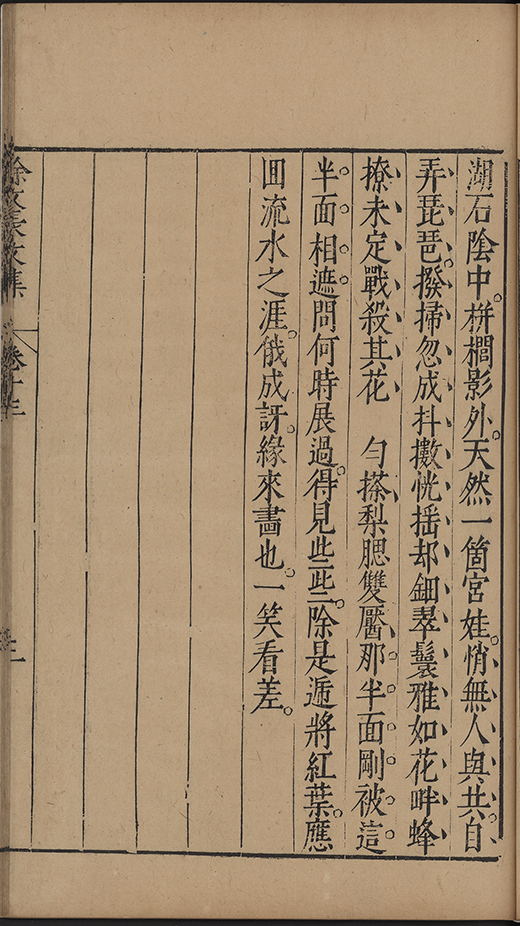 湖石陰中。栟櫚影外。天然一箇宮娃。悄無人與共。自
弄琵琶。撥掃忽成抖擻。恍摇却鈿翠鬟雅。如花畔蜂
撩未定。戰殺其花　勻搽梨腮雙靨。那半面剛被這
半面相遮。問何時展過。得見些些。除是遞將紅葉。應
囬流水之涯。俄成訝。緣來畵也。一笑看差。
徐文長文集
卷十三